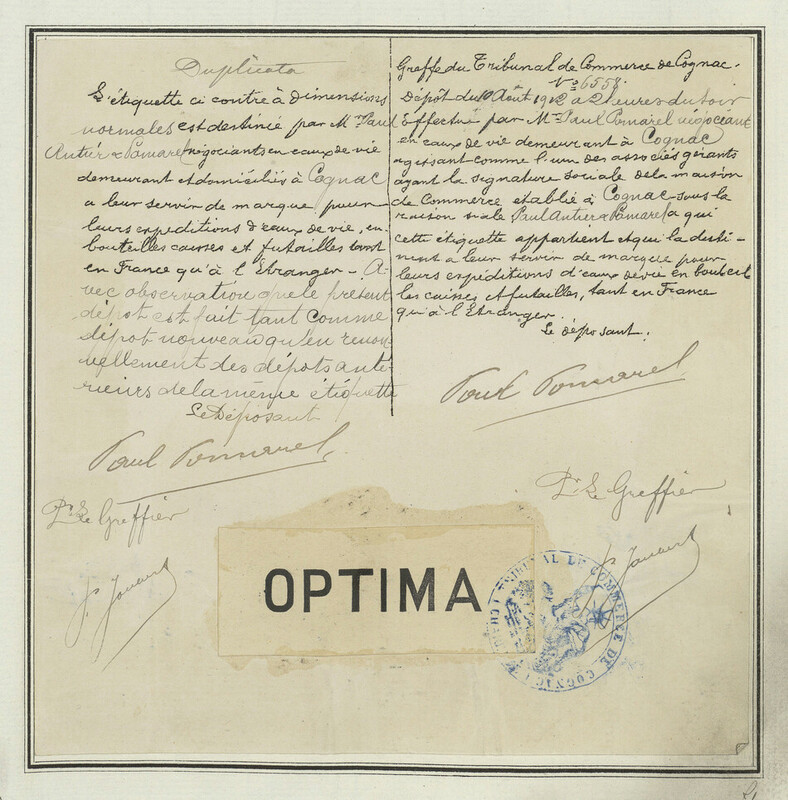 Duplicata
L'étiquette ci contre à dimensions
normales est destinée par Mr Paul
Antier & Pomarel négociants en eaux de vie
demeurant et domiciliés à Cognac
a leur servir de marque pour
leurs expeditions d'eaux de vie, en
bouteilles caisses et futailles tant
en France qu'à l'Etranger - A-
vec observation que le présent
dépot est fait tant comme
dépot nouveau qu'en renou
vellement des dépots anté-
rieurs de la même étiquette
Le Déposant
Paul Pomarel
Pr Le Greffier
Greffe du Tribunal de Commerce de Cognac.
No 6558.
Dépôt du 10 Août 1912 a 2 eures du soir
Effectué par Mr Paul Pomarel négociant
en eaux de vie demeurant à Cognac
agissant comme l'un des associés gérants
ayant la signature sociale de la maison
de Commerce etablie à Cognac sous la
raison siale Paul Antier & Pomarel a qui
cette étiquette appartient et qui la desti-
nent a leur servir de marque pour
leurs expéditions d'eaux de vie en bouteil
les caisses et futailles, tant en France
qu'à l'Etranger.
Le déposant.
Paul Pomarel
Pr Le Greffier
OPTIMA
TRIBUNAL DE COMMERCE DE COGNAC